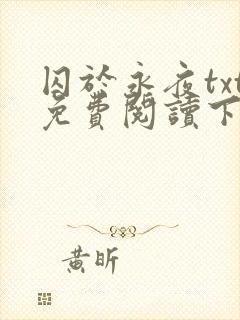 囚於永夜txt
免費閱讀下
黃昕